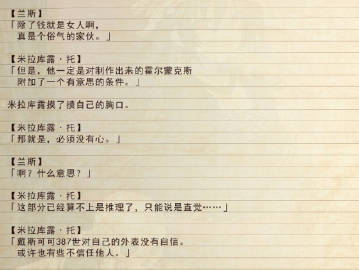 【兰斯】
「除了钱就是女人啊，
真是个俗气的家伙。」
【米拉库露·托】
「但是，他一定是对制作出来的霍尔蒙克斯
附加了一个有意思的条件。」
米拉库露摸了摸自己的胸口。
【米拉库露·托】
「那就是，必须没有心。」
【兰斯】
「啊？什么意思？」
【米拉库露·托】
「这部分已经算不上是推理了，只能说是直觉……」
【米拉库露·托】
「戴斯可可387世对自己的外表没有自信。
或许也有些不信任他人。」